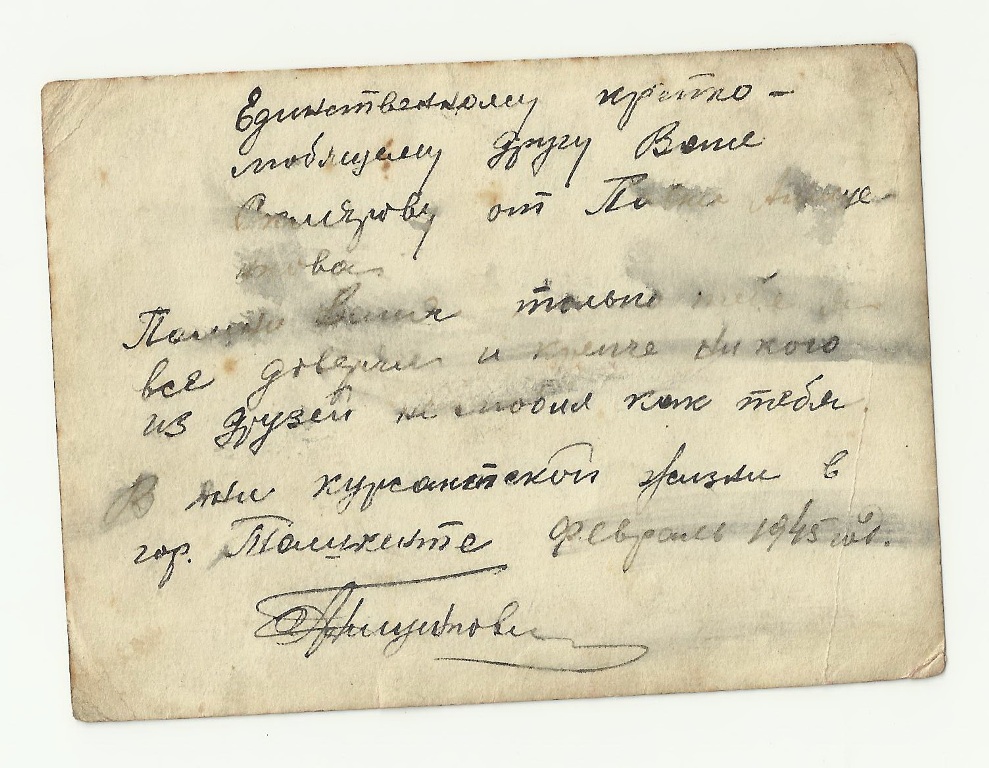 Единственному крепко-
любящему другу Ване
от
Помни Ваня только тебе я
все доверял и крепче никого
из друзей не любил как тебя.
В дни курсантской жизни в
гор. Ташкенте февраль 1945 год.